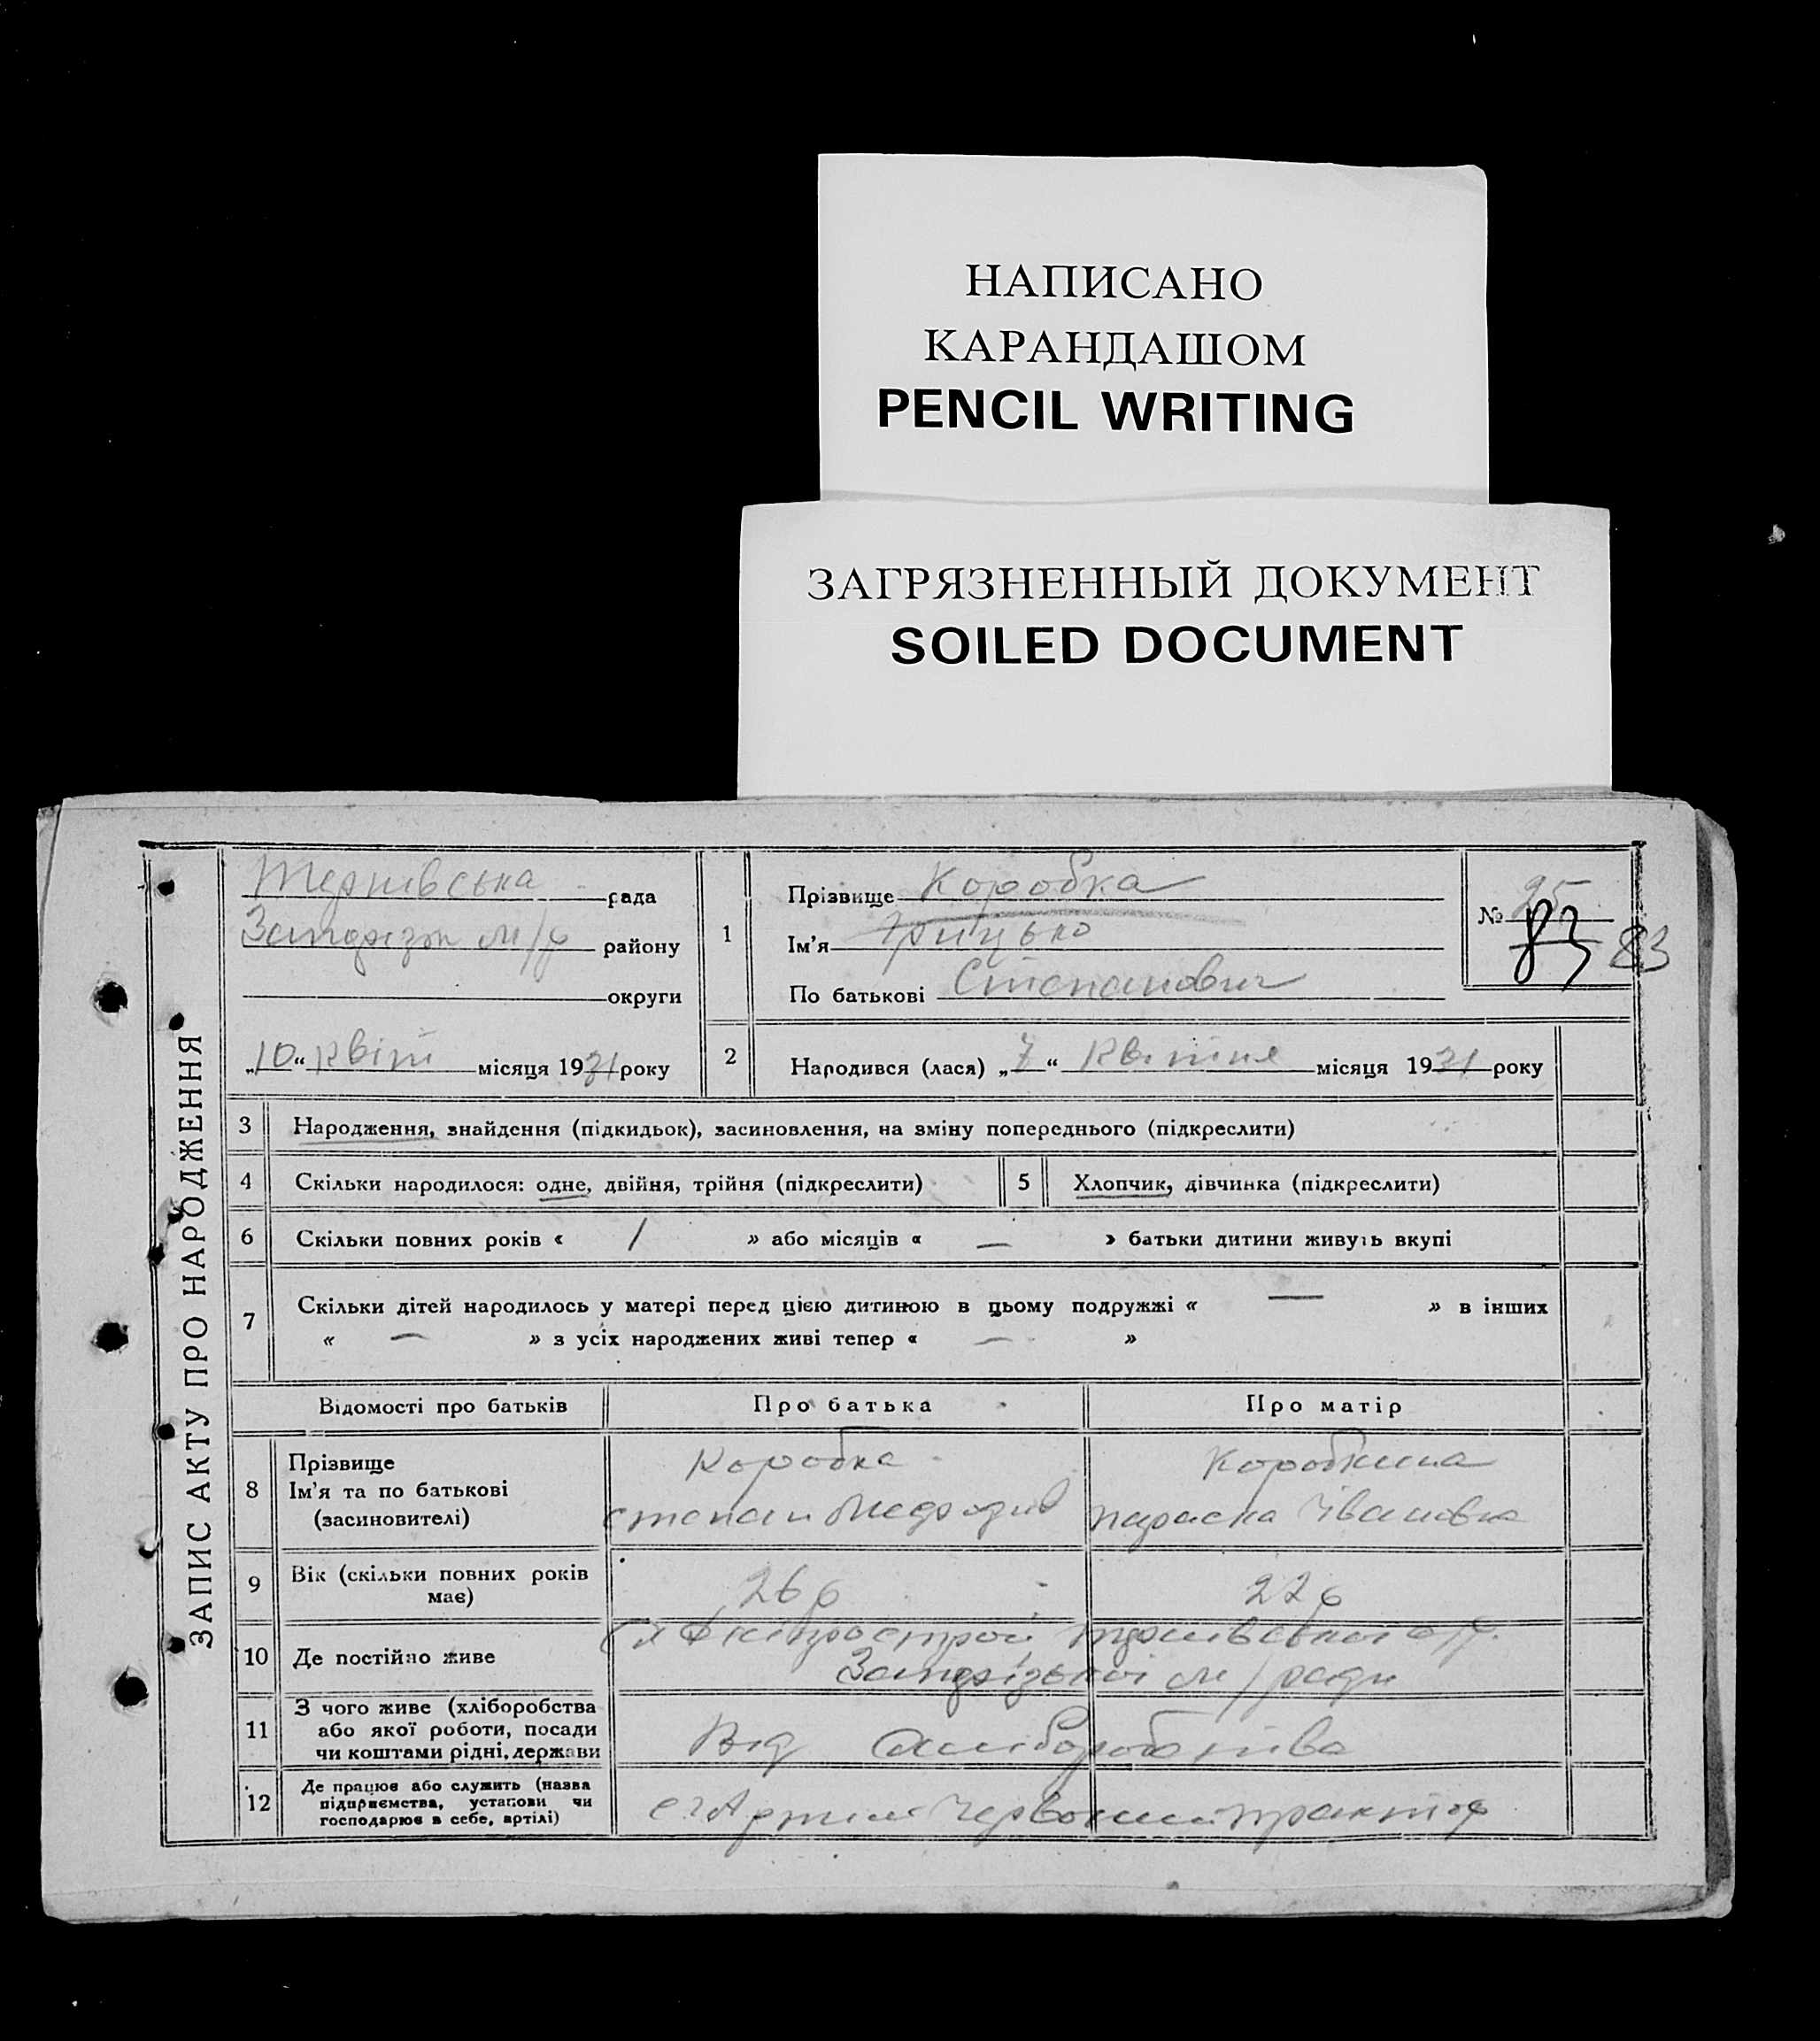 НАПИСАНО
КАРАНДАШОМ
PENCIL WRITING
ЗАГРЯЗНЕННЫЙ ДОКУМЕНТ
SOILED DOCUMENT
ЗАПИС АКТУ ПРО НАРОДЖЕННЯ
Тернівська рада
Запоріз м/р району
округи
„10“ квіт місяця 1931 року
1
Прізвище Коробка
Ім’я Грицько
По батькові Степанович
№ 25
83 83
2
Народився (лася) „7“ Квітня місяця 1931 року
3 Народження, знайдення (підкидьок), засиновлення, на зміну попереднього (підкреслити)
4 Скільки народилося: одне, двійня, трійня (підкреслити) 5 Хлопчик, дівчинка (підкреслити)
6 Скільки повних років « 1 » або місяців « — » батьки дитини живуть вкупі
7 Скільки дітей народилось у матері перед цією дитиною в цьому подружжі « — » в інших
« — » з усіх народжених живі тепер « — »
Відомості про батьків Про батька Про матір
8 Прізвище
Ім’я та по батькові
(засиновителі)
Коробка
Степан
Коробкина
Параска Івановна
9 Вік (скільки повних років
має)
26р 22р
10 Де постійно живе
Дніпрострой Тернівської с/р.
Запорізької м/ради
11 З чого живе (хліборобства
або якої роботи, посади
чи коштами рідні, держави
Від
12 Де працює або служить (назва
підприємства, установи чи
господарює в себе, артілі)
Артіль Червоний трактор